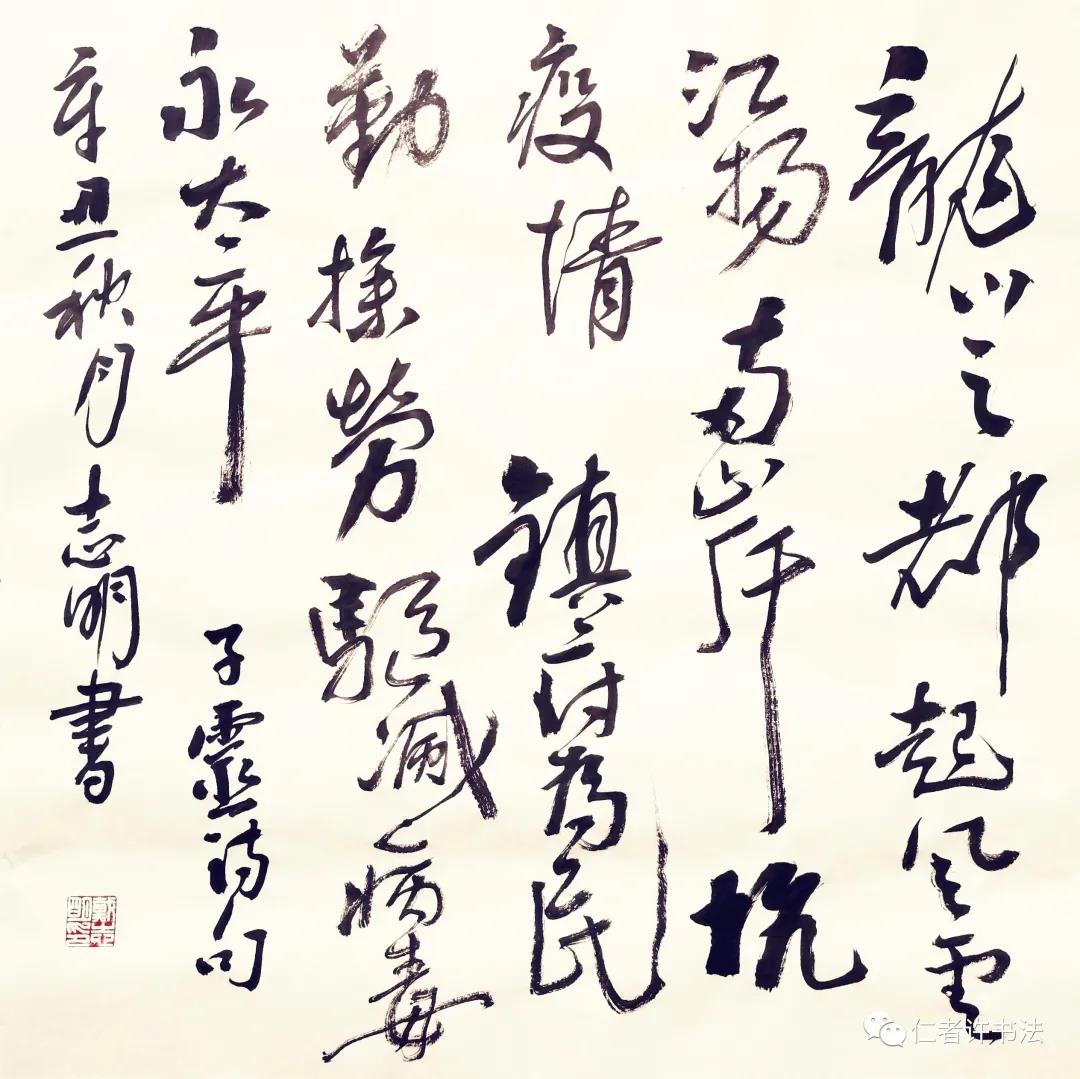 龍川之都起風雲
江揚岸抗
疫情鎮村為民
勤操勞驅滅病毒
永太平
子靈詩句
辛丑秋月志明書
戴志明印
仁者许书法